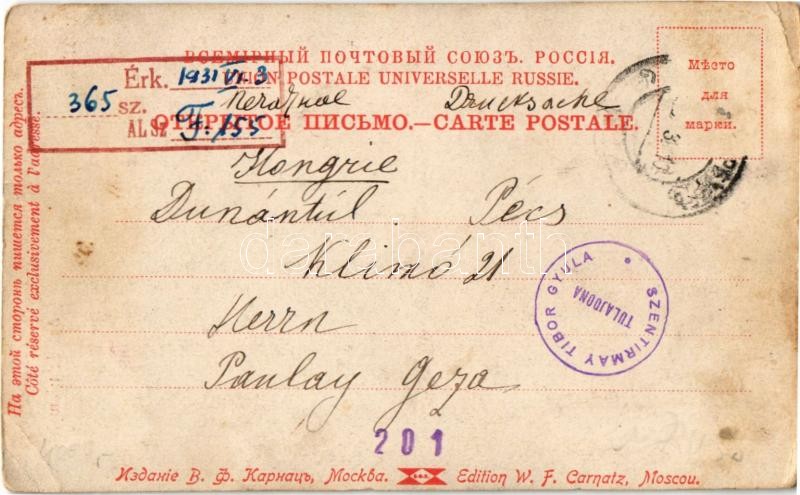 ВСЕМІРНЫЙ ПОЧТОВЫЙ СОЮЗЪ. РОССІЯ.
UNION POSTALE UNIVERSELLE RUSSIE.
Érk. 1931 VI. 3
365 sz.
AL SZ F: 155
Печатное Drucksache
ОТКРЫТОЕ ПИСЬМО.—CARTE POSTALE.
Мѣсто
для
марки.
Hongrie
Dunántúl. Pécs
Klimó 21
Herrn
Paulay Geza
SZENTIRMAY TIBOR GYULA
TULAJDONA
201
darabanth
На этой сторонѣ пишется только адресъ.
Côté réservé exclusivement à l'adresse.
Изданіе В. Ф. Карнацъ, Москва. Edition W. F. Carnatz, Moscou.